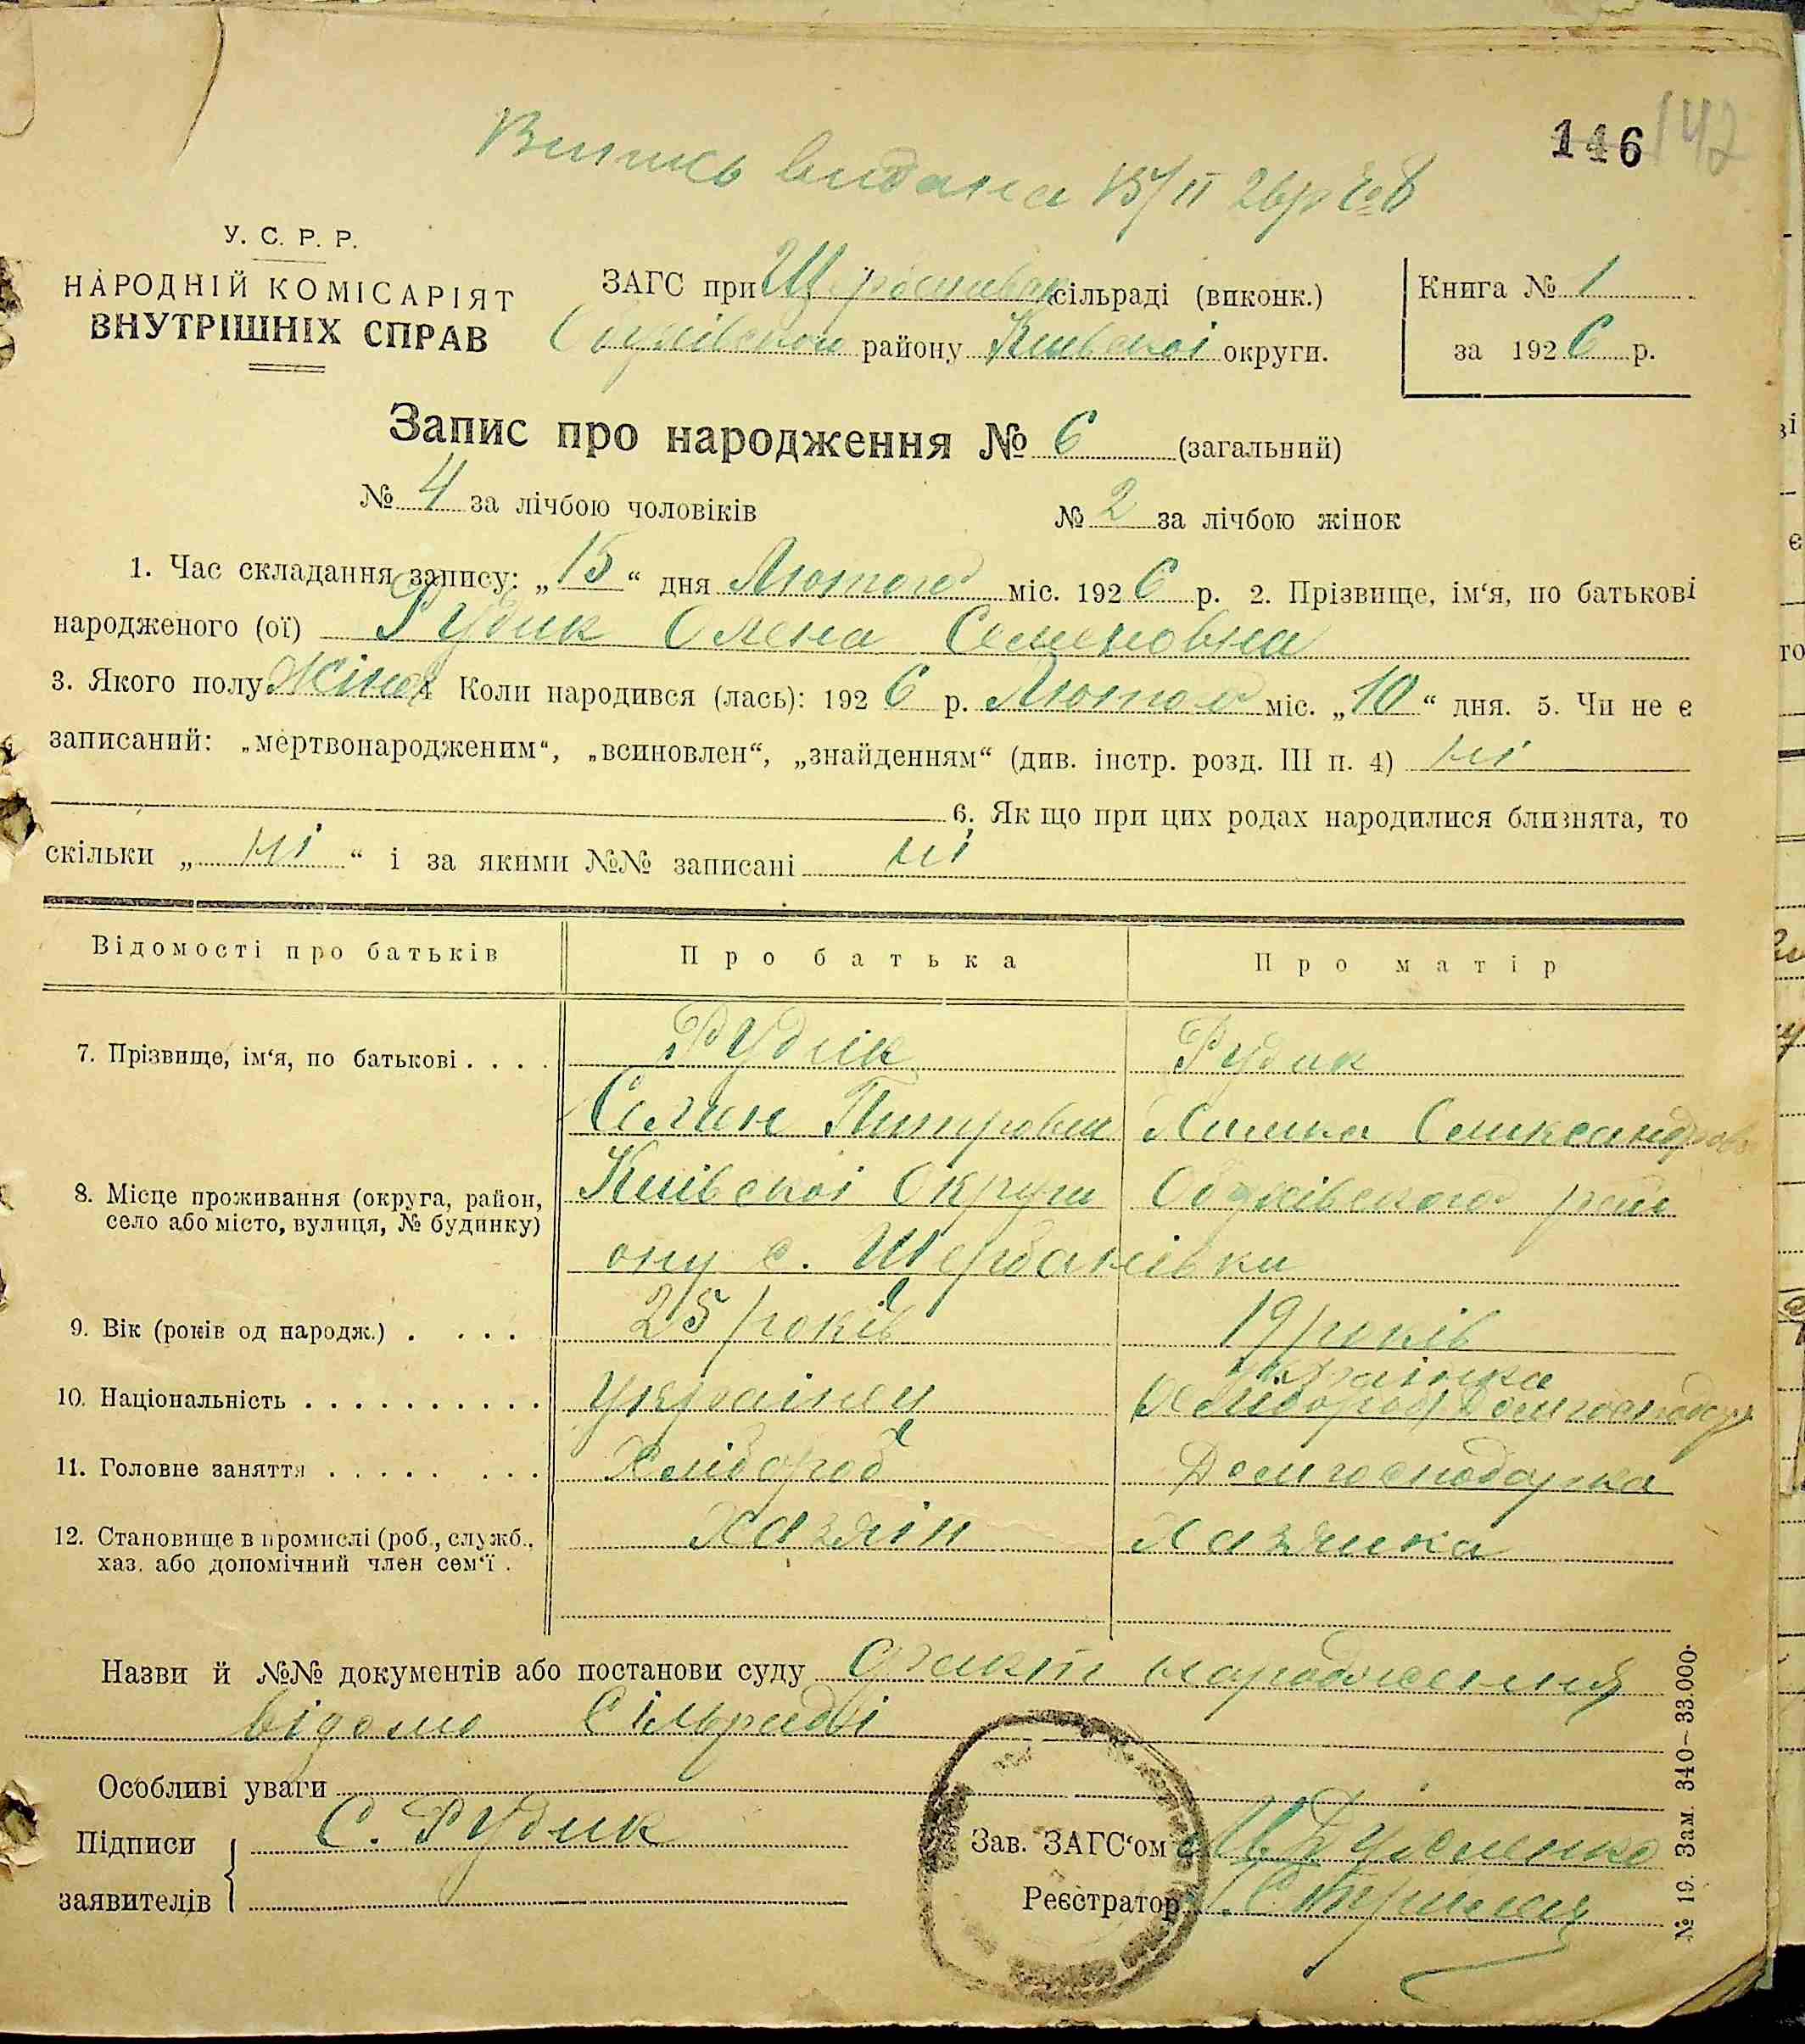 146 142
Випись видана 15/II 26р
У. С. Р. Р.
НАРОДНІЙ КОМІСАРІЯТ
ВНУТРІШНІХ СПРАВ
ЗАГС при сільраді (виконк.)
Обухівськои району Київської округи.
Книга № 1
за 1926 р.
Запис про народження № 6 (загальний)
№ 4 за лічбою чоловіків № 2 за лічбою жінок
1. Час складання запису: „15“ дня Лютого міс. 1926 р. 2. Прізвище, ім‘я, по батькові
народженого (ої) Рудик Олена Семеновна
3. Якого полу Жіноч 4 Коли народився (лась): 1926 р. Лютого міс. „10“ дня. 5. Чи не є
записаний: „мертвонародженим“, „всиновлен“, „знайденням“ (див. інстр. розд. III п. 4) ні
6. Як що при цих родах народилися близнята, то
скільки „ ні “ і за якими №№ записані ні
Відомості про батьків Про батька Про матір
7. Прізвище, ім‘я, по батькові . . . . Рудик Рудик
8. Місце проживання (округа, район,
село або місто, вулиця, № будинку)
Київської Округи Обухівського рай
ону с. Щербанівки
9. Вік (років од народж.) . . . . 25 років 19 років
10. Національність . . . . . . . . . . Українец Українка
11. Головне заняття . . . . . . . . Хлібороб Домгосподарка
12. Становище в промислі (роб., служб.,
хаз. або допомічний член сем‘ї .
Хазяін Хазяика
Назви й №№ документів або постанови суду Факт народження
відомо Сільраді
Особливі уваги
Підписи
заявителів
С. Рудик
Зав. ЗАГС‘ом
Реєстратор
№ 19. Зам. 340–33.000.